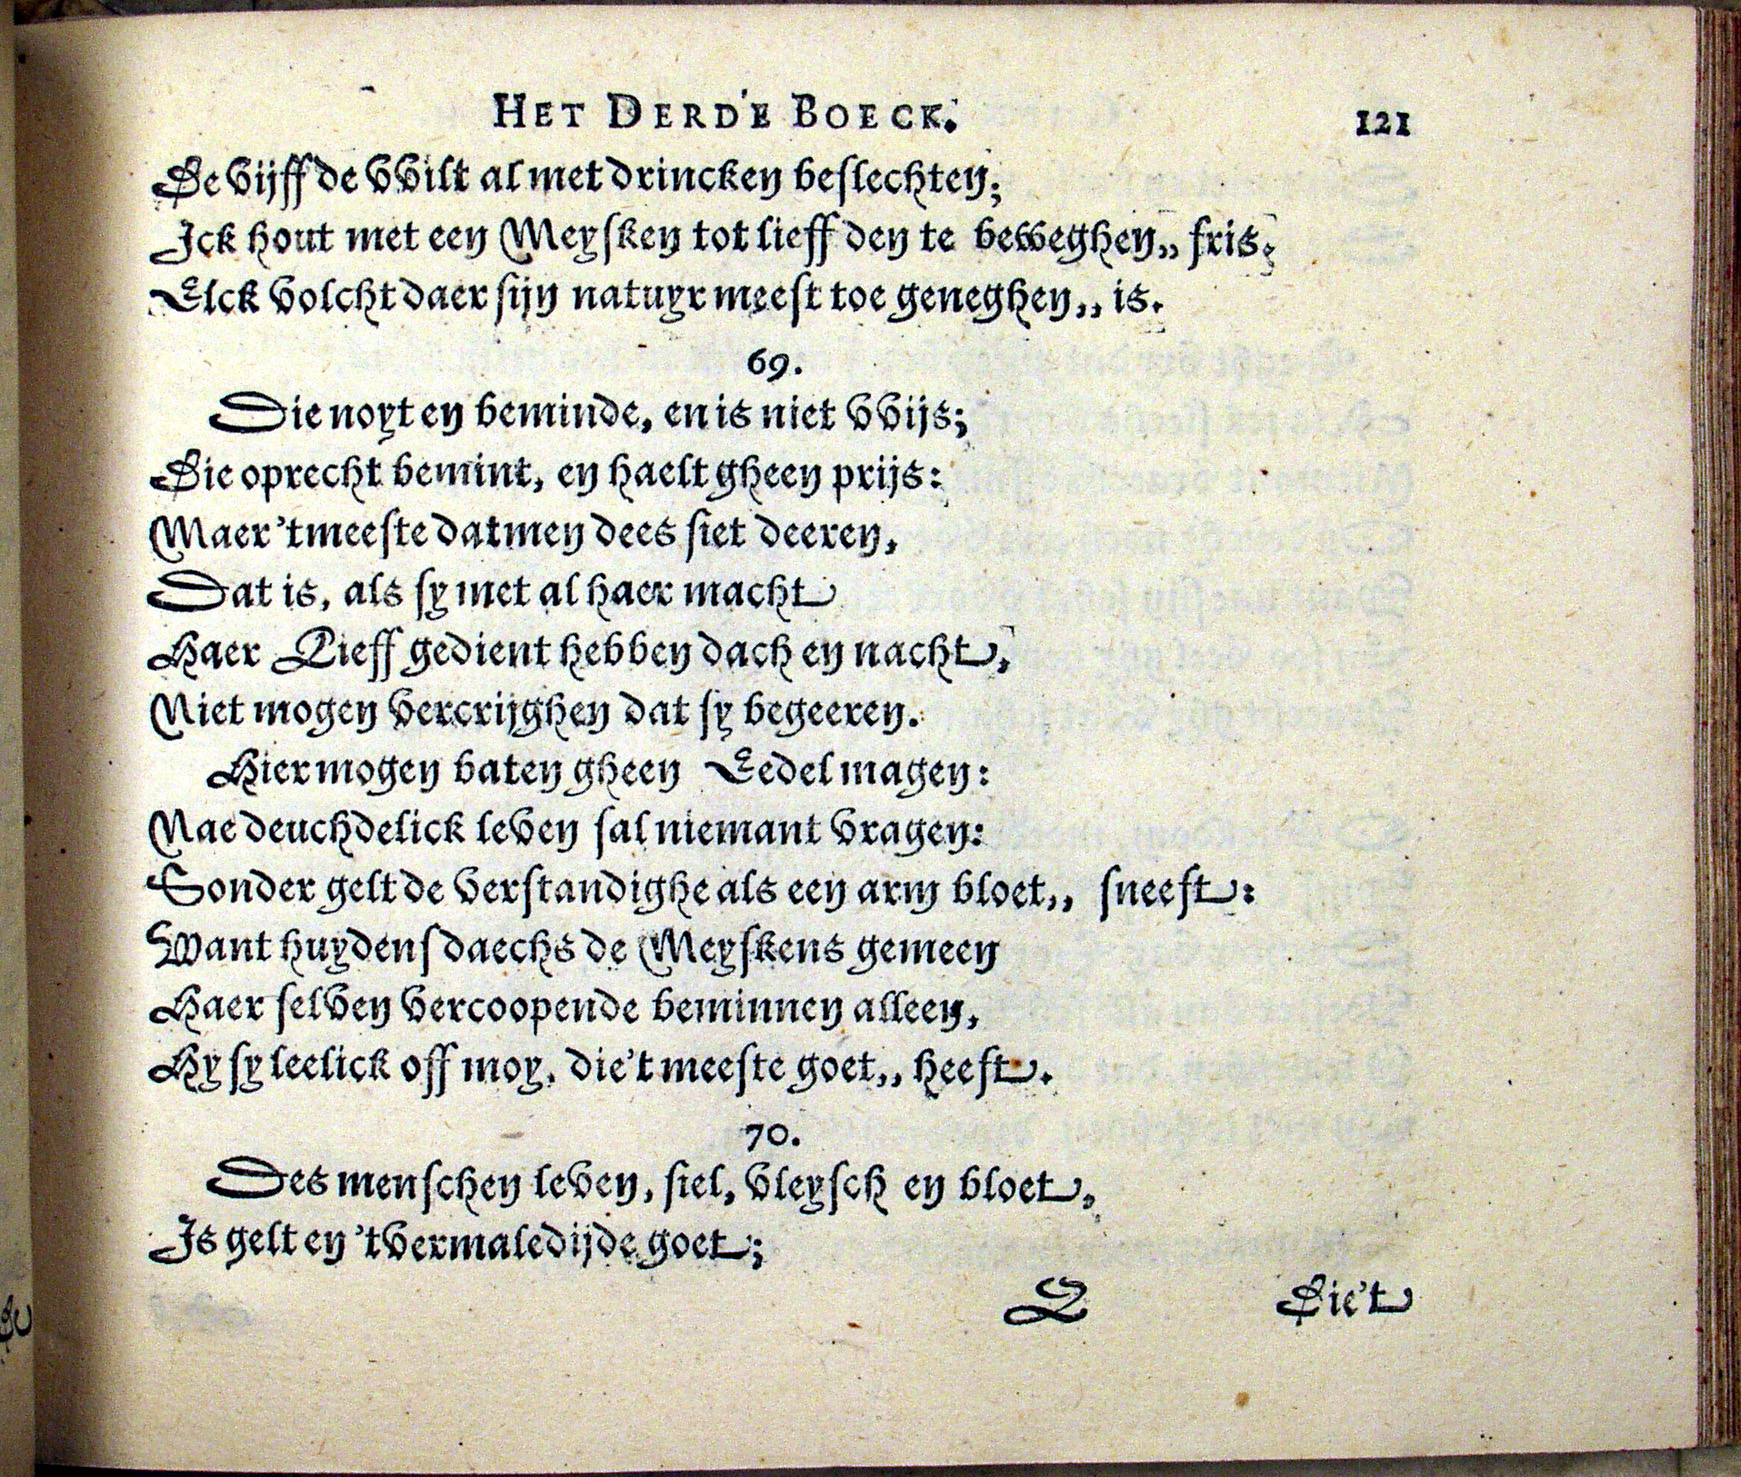 HET DERDE BOECK. 121
De vijffde vvilt al met drincken beslechten;
Ick hout met een Meysken tot lieffden te beweghen,, fris;
Elck volcht daer sijn natuyr meest toe geneghen,, is.
69.
Die noyt en beminde, en is niet vvijs;
Die oprecht bemint, en haelt gheen prijs:
Maer 'tmeeste datmen dees siet deeren,
Dat is, als sy met al haer macht
Haer Lieff gedient hebben dach en nacht,
Niet mogen vercrijghen dat sy begeeren.
Hier mogen baten gheen Eedel magen:
Nae deuchdelick leven sal niemant vragen:
Sonder gelt de verstandighe als een arm bloet,, sneeft:
Want huydensdaechs de Meyskens gemeen
Haer selven vercoopende beminnen alleen,
Hy sy leelick off moy, die't meeste goet,, heeft.
70.
Des menschen leven, siel, vleysch en bloet,
Is gelt en 't vermaledijde goet;
Q Die't